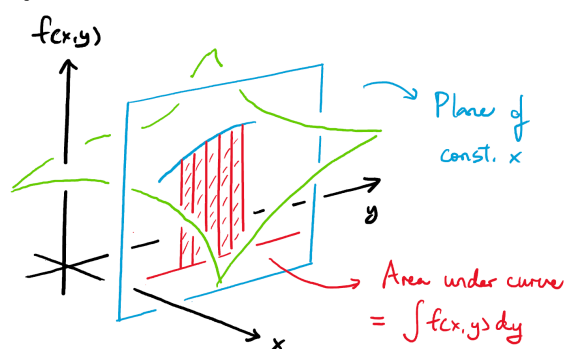 f(x,y)
Plane of
const. x
y
Area under curve
= ∫ f(x,y) dy
x